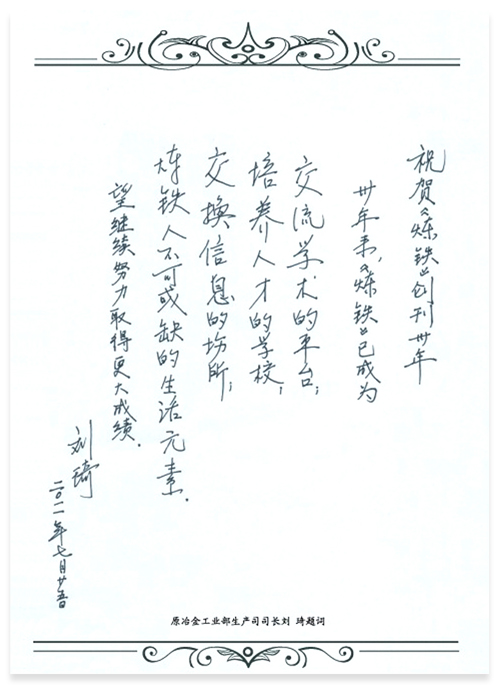 祝贺《炼铁》创刊卅年
卅年来，《炼铁》已成为
交流学术的平台；
培养人才的学校；
交换信息的场所；
炼铁人不可或缺的生活元素．
望继续努力取得更大成绩．
刘琦
二〇一一年七月廿五日
原冶金工业部生产司司长刘 琦题词